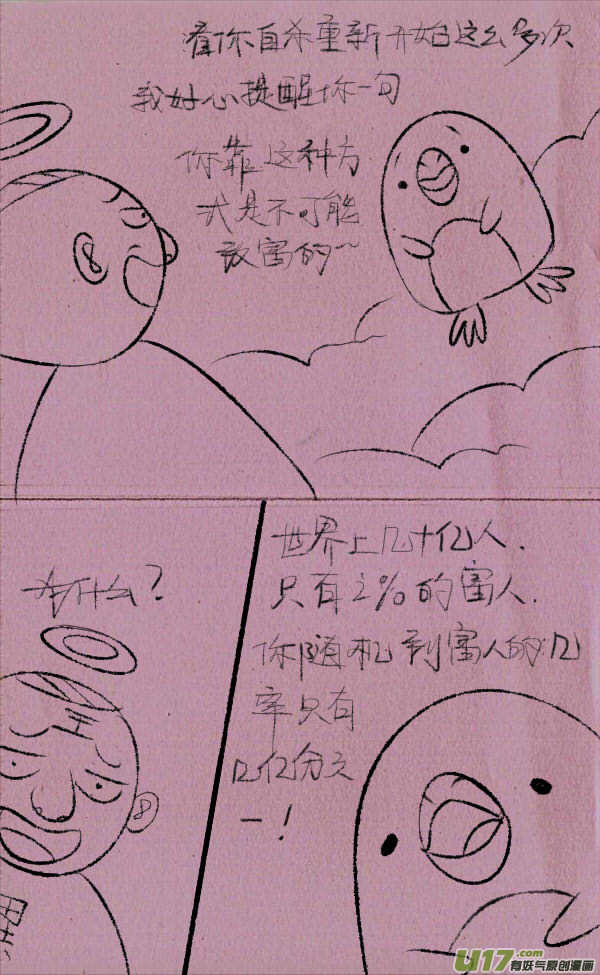 看你自杀重新开始这么多次
我好心提醒你一句
你靠这种方
式是不可能
致富的~~
为什么?
世界上几十亿人.
只有2%的富人.
你随机到富人的几
率只有
几亿分之
一!
U17.com
有妖气原创漫画